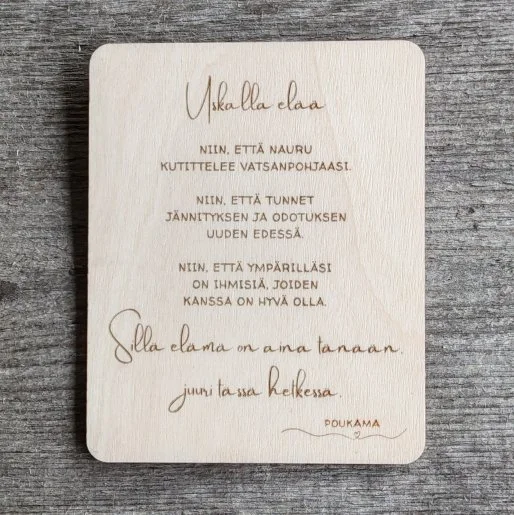 Uskalla elää
NIIN, ETTÄ NAURU
KUTITTELEE VATSANPOHJAASI.
NIIN, ETTÄ TUNNET
JÄNNITYKSEN JA ODOTUKSEN
UUDEN EDESSÄ.
NIIN, ETTÄ YMPÄRILLÄSI
ON IHMISIÄ, JOIDEN
KANSSA ON HYVÄ OLLA.
Sillä elämä on aina tänään,
juuri tässä hetkessä.
POUKAMA